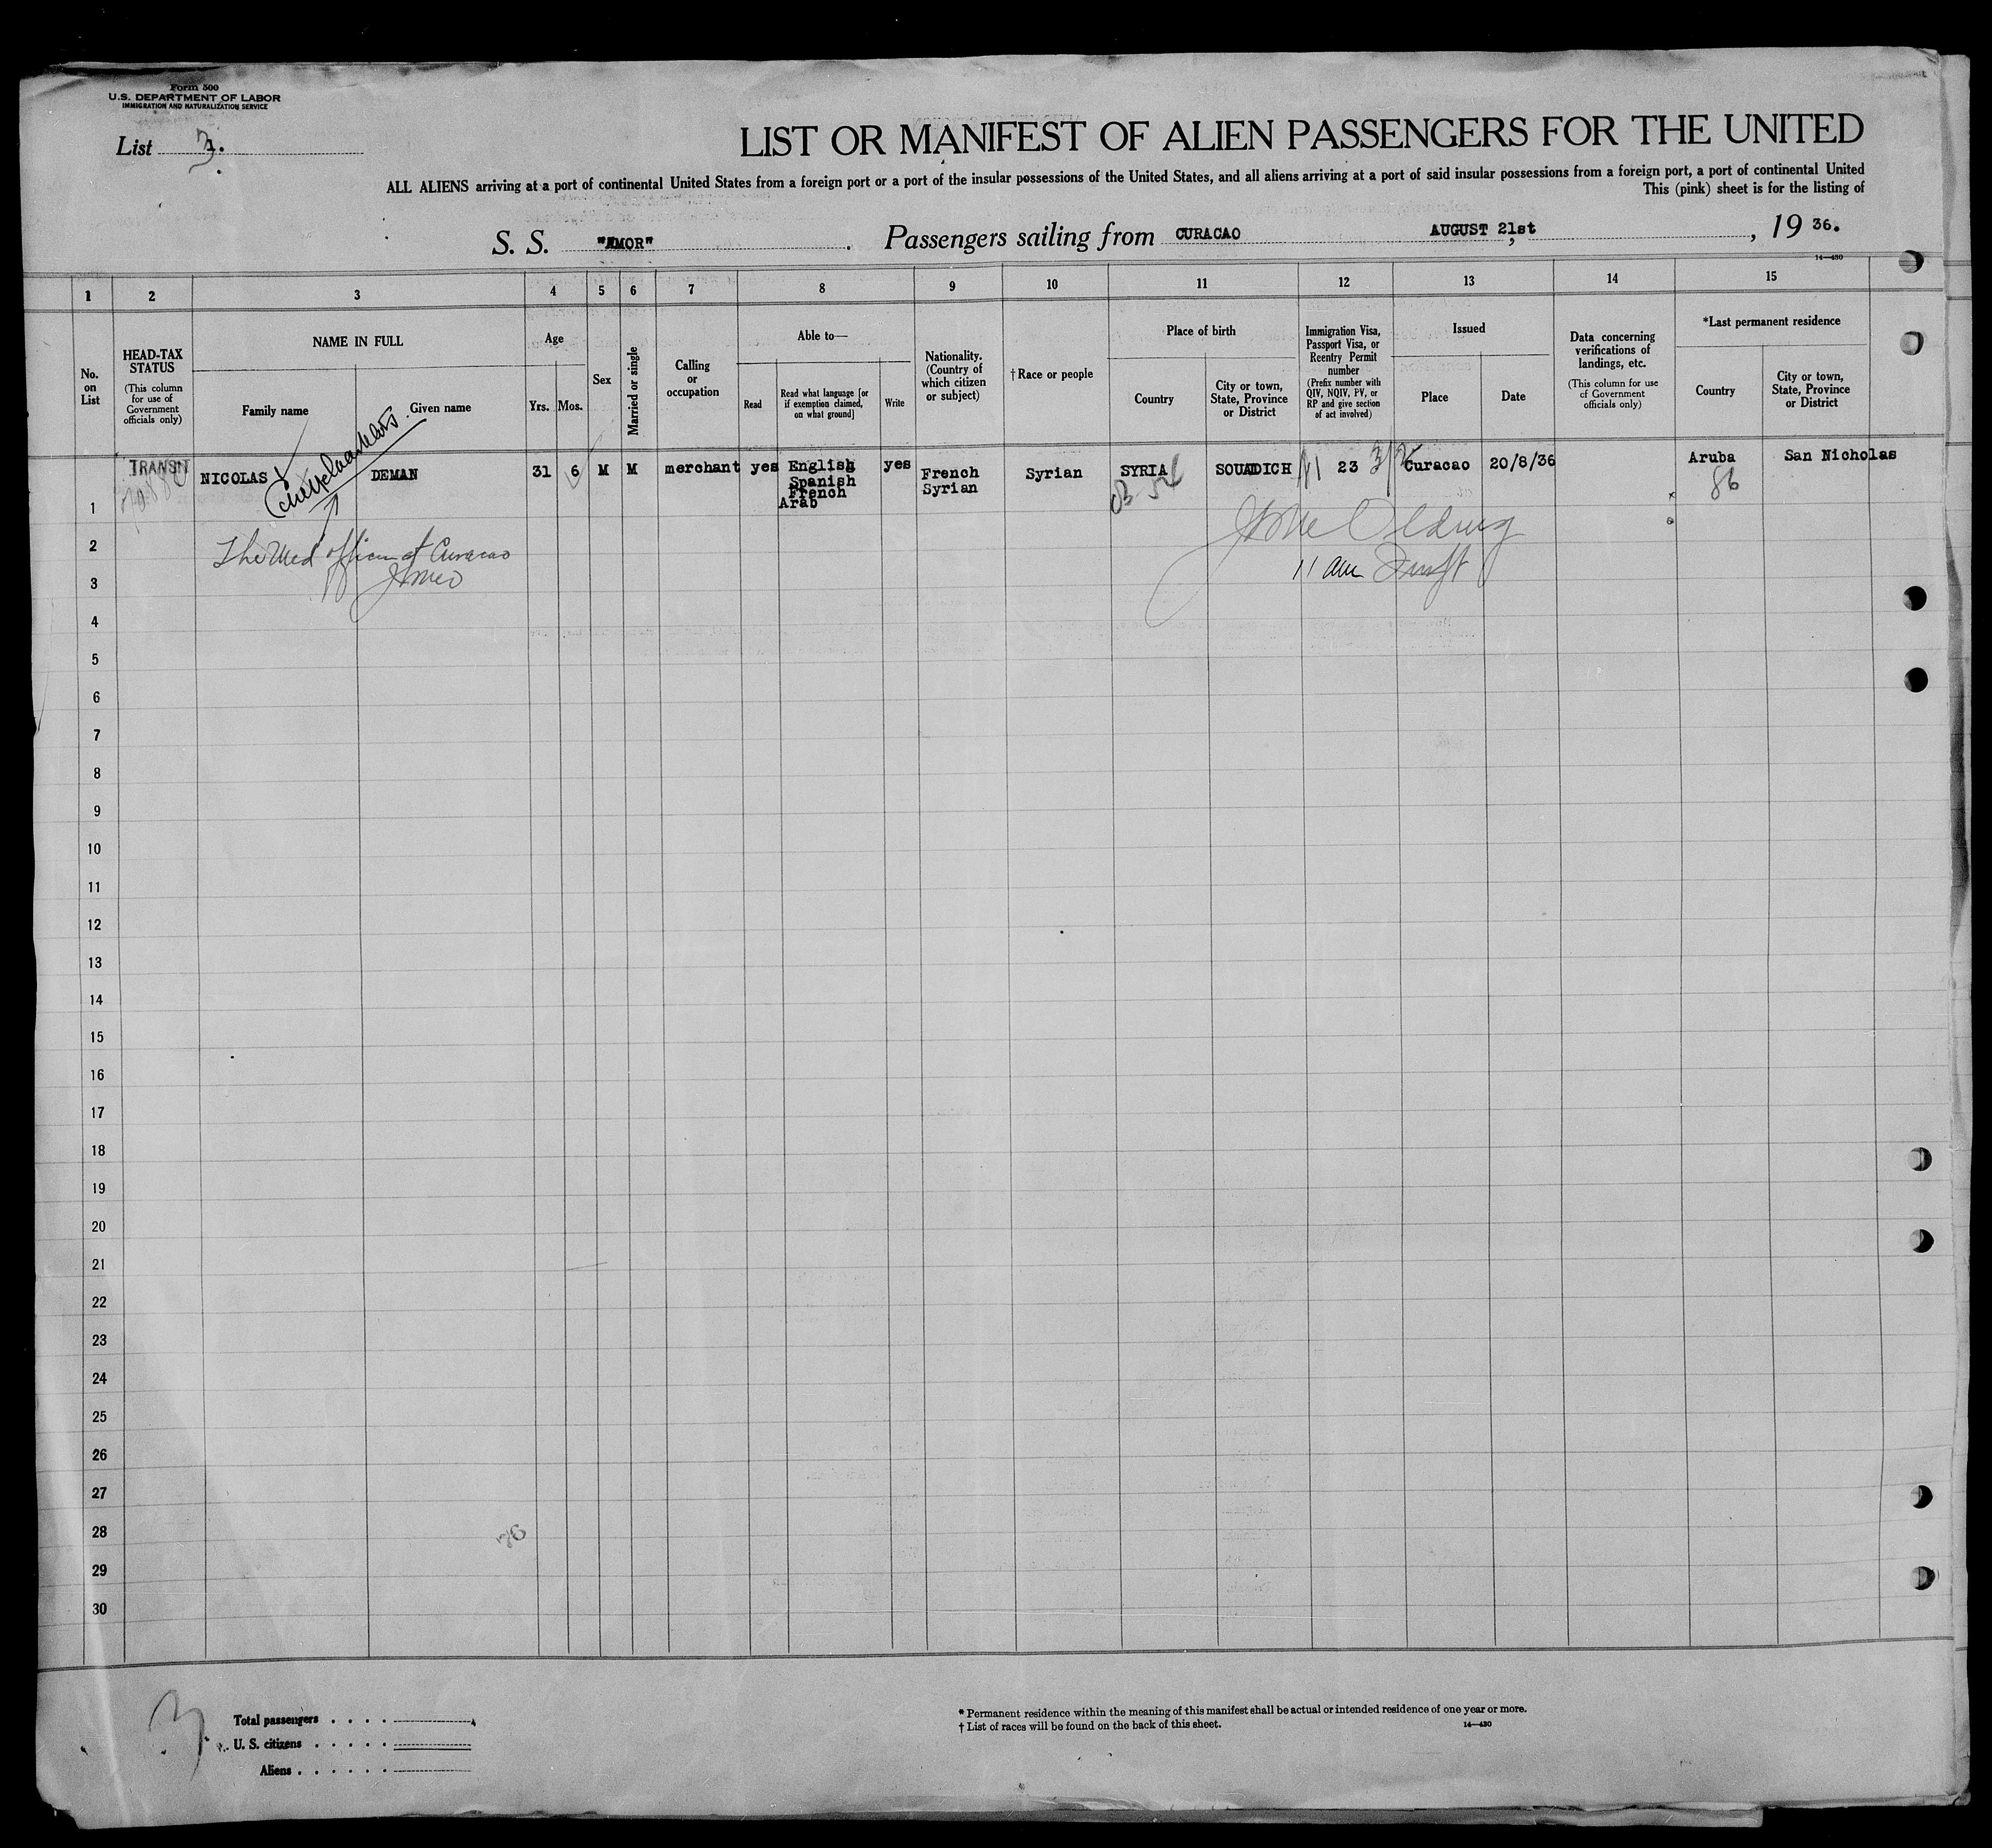 Form 500
U.S. DEPARTMENT OF LABOR
IMMIGRATION AND NATURALIZATION SERVICE
List 3.
LIST OR MANIFEST OF ALIEN PASSENGERS FOR THE UNITED
ALL ALIENS arriving at a port of continental United States from a foreign port or a port of the insular possessions of the United States, and all aliens arriving at a port of said insular possessions from a foreign port, a port of continental United
This (pink) sheet is for the listing of
S. S. "AMOR" Passengers sailing from CURACAO AUGUST 21st, 19 36.
14—430
1 2 3 4 5 6 7 8 9 10 11 12 13 14 15
No. on List
HEAD-TAX STATUS
(This column for use of Government officials only)
NAME IN FULL
Family name Given name
Age
Yrs. Mos.
Sex
Married or single
Calling or occupation
Able to—
Read
Read what language [or if exemption claimed, on what ground]
Write
Nationality. (Country of which citizen or subject)
†Race or people
Place of birth
Country
City or town, State, Province or District
Immigration Visa, Passport Visa, or Reentry Permit number
(Prefix number with QIV, NQIV, PV, or RP and give section of act involved)
Issued
Place
Date
Data concerning verifications of landings, etc.
(This column for use of Government officials only)
*Last permanent residence
Country
City or town, State, Province or District
TRANSIT
1 NICOLAS DEMAN 31 6 M M merchant yes English Spanish French Arab yes French Syrian Syrian SYRIA SOUADICH 23 Curacao 20/8/36 Aruba San Nicholas
86
2 The Med officer at Curacao
3 11 am
4
5
6
7
8
9
10
11
12
13
14
15
16
17
18
19
20
21
22
23
24
25
26
27
28
76
29
30
3.
Total passengers
U. S. citizens
Aliens
* Permanent residence within the meaning of this manifest shall be actual or intended residence of one year or more.
† List of races will be found on the back of this sheet.
14—430